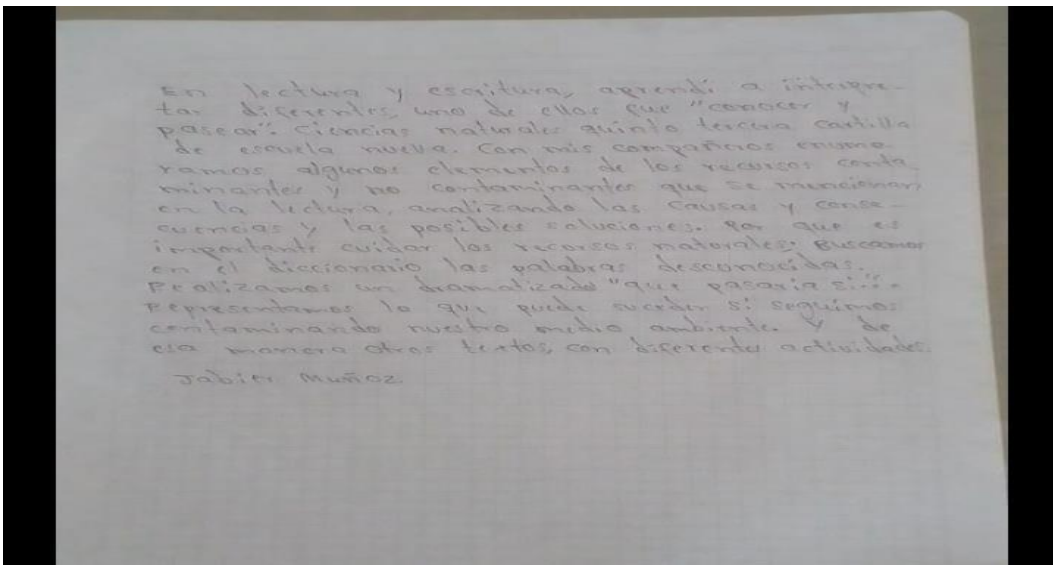 En lectura y escritura, aprendí a interpre-
tar diferentes, uno de ellos fue "conocer y
pasear". Ciencias naturales quinto tercera cartilla
de escuela nueva. Con mis compañeros enume
ramos algunos elementos de los recursos conta
minantes y no contaminantes que se mencionan
en la lectura, analizando las causas y conse-
cuencias y las posibles soluciones. Por que es
importante cuidar los recursos naturales. Buscamos
en el diccionario las palabras desconocidas.
Realizamos un dramatizado "que pasaria si...
Representamos lo que puede suceder si seguimos
contaminando nuestro medio ambiente. Y de
esa manera otros textos, con diferentes actividades.
Jabier Muñoz.